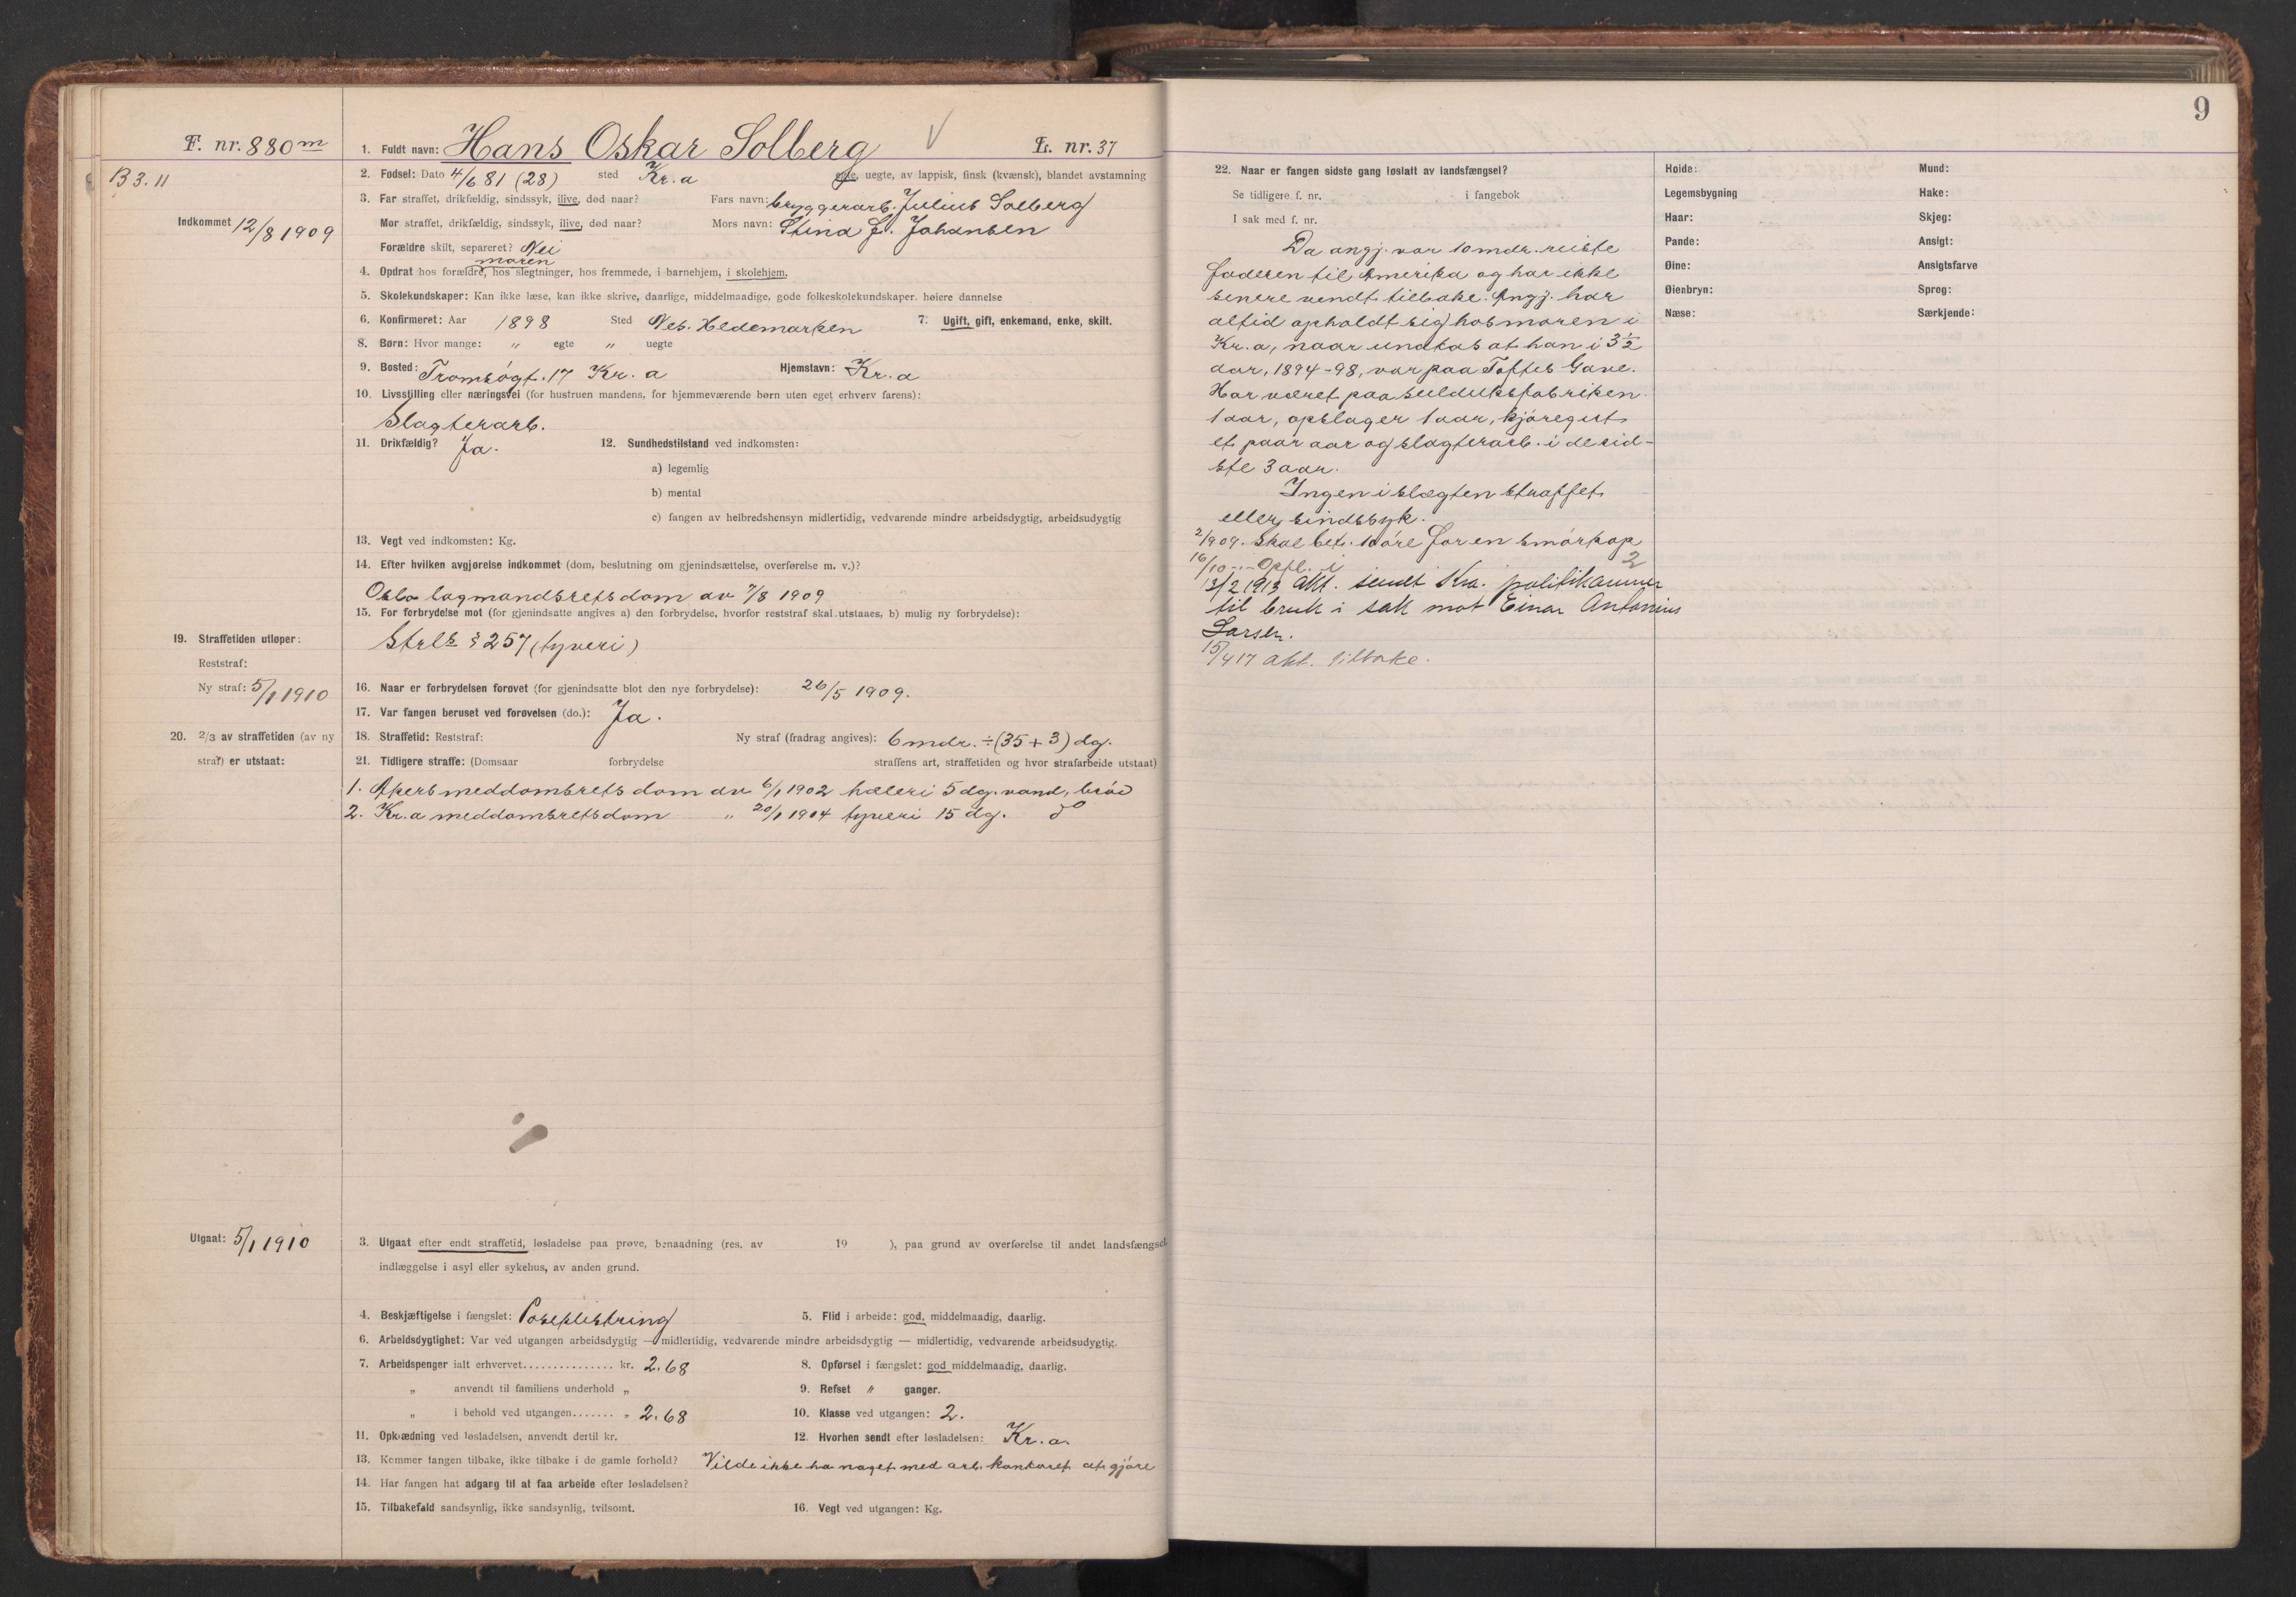 F. nr. 880 m
B 3. 11
Indkommet 12/8 1909
1. Fuldt navn: Hans Oskar Solberg V L. nr. 37
2. Fødsel: Dato 4/6 81 (28) sted Kr.a egte, uegte, av lappisk, finsk (kvænsk), blandet avstamning
3. Far straffet, drikfældig, sindssyk, ilive, død naar? Fars navn: bryggerarb. Julius Solberg
Mor straffet, drikfældig, sindssyk, ilive, død naar? Mors navn: Stina Johansen
Forældre skilt, separeret? Nei
moren
4. Opdrat hos forældre, hos slegtninger, hos fremmede, i barnehjem, i skolehjem.
5. Skolekundskaper: Kan ikke læse, kan ikke skrive, daarlige, middelmaadige, gode folkeskolekundskaper. høiere dannelse
6. Konfirmeret: Aar 1898 Sted Nes. Hedemarken 7. Ugift, gift, enkemand, enke, skilt.
8. Børn: Hvor mange: " egte " uegte
9. Bosted: Tromsøgt. 17 Kr. a Hjemstavn: Kr. a
10. Livsstilling eller næringsvei (for hustruen mandens, for hjemmeværende børn uten eget erhverv farens):
Slagterarb.
11. Drikfældig? Ja. 12. Sundhedstilstand ved indkomsten:
a) legemlig
b) mental
c) fangen av helbredshensyn midlertidig, vedvarende mindre arbeidsdygtig, arbeidsudygtig
13. Vegt ved indkomsten: Kg.
14. Efter hvilken avgjørelse indkommet (dom, beslutning om gjenindsættelse, overførelse m. v.)?
Oslo lagmandsrets dom av 7/8 1909
15. For forbrydelse mot (for gjenindsatte angives a) den forbrydelse, hvorfor reststraf skal utstaaes, b) mulig ny forbrydelse):
Strls § 257 (tyveri)
19. Straffetiden utløper:
Reststraf:
Ny straf: 5/1 1910
16. Naar er forbrydelsen forøvet (for gjenindsatte blot den nye forbrydelse): 26/5 1909.
17. Var fangen beruset ved forøvelsen (do.): Ja.
20. 2/3 av straffetiden (av ny straf) er utstaat:
18. Straffetid: Reststraf: Ny straf (fradrag angives): 6 mdr. ÷ (35 + 3) dg.
21. Tidligere straffe: (Domsaar forbrydelse straffens art, straffetiden og hvor strafarbeide utstaat)
1. Akers meddomsrets dom av 6/1 1902 hæleri 5 dg. vand, brød
2. Kr.a meddomsretsdom " 20/1 1904 tyveri 15 dg. do
Utgaat: 5/1 1910
3. Utgaat efter endt straffetid, løsladelse paa prøve, benaadning (res. av 19 ), paa grund av overførelse til andet landsfængsel
indlæggelse i asyl eller sykehus, av anden grund.
4. Beskjæftigelse i fængslet: Poseklistring 5. Flid i arbeide: god, middelmaadig, daarlig.
6. Arbeidsdygtighet: Var ved utgangen arbeidsdygtig — midlertidig, vedvarende mindre arbeidsdygtig — midlertidig, vedvarende arbeidsudygtig.
7. Arbeidspenger ialt erhvervet............... kr. 2.68 8. Opførsel i fængslet: god middelmaadig, daarlig.
" anvendt til familiens underhold " 9. Refset " ganger.
" i behold ved utgangen....... " 2.68 10. Klasse ved utgangen: 2.
11. Opklædning ved løsladelsen, anvendt dertil kr. 12. Hvorhen sendt efter løsladelsen: Kr. a.
13. Kommer fangen tilbake, ikke tilbake i de gamle forhold? Vilde ikke ha noget med arb. kontoret at gjøre
14. Har fangen hat adgang til at faa arbeide efter løsladelsen?
15. Tilbakefald sandsynlig, ikke sandsynlig, tvilsomt. 16. Vegt ved utgangen: Kg.
9
22. Naar er fangen sidste gang løslatt av landsfængsel?
Se tidligere f. nr. i fangebok
I sak med f. nr.
Da angj. var 10 mdr. reiste
faderen til Amerika og har ikke
senere vendt tilbake. Angj. har
altid opholdt sig hos moren i
Kr. a, naar undtas at han i 3 1/2
aar, 1894-98, var paa Toftes Gave.
Har været paa seilduksfabriken
1 aar, opslager 1 aar, kjøregut
et paar aar og slagterarb. i de sid-
ste 3 aar.
Ingen i slægten straffet
eller sindssyk.
2/9 09. Skal bet. 10 øre for en smørkop
16/10 - Opfl. i 2
13/2 1913 Akt. sendt Kra. politikammer
til bruk i sak mot Einar Antonius
Larsen.
15/4 17 akt. tilbake.
Høide:
Legemsbygning
Haar:
Pande:
Øine:
Øienbryn:
Næse:
Mund:
Hake:
Skjeg:
Ansigt:
Ansigtsfarve
Sprog:
Særkjende: